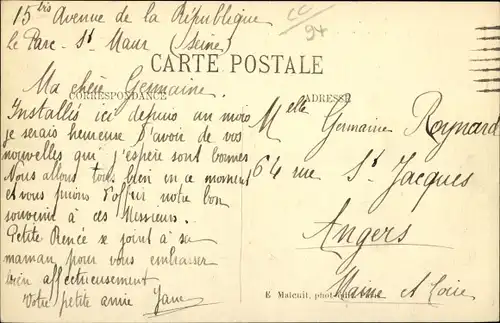 15 bis Avenue de la République
Le Parc - St Maur (Seine)
CC
94
CARTE POSTALE
CORRESPONDANCE
ADRESSE
Ma chère Germaine.
Installés ici depuis un mois
je serais heureuse d'avoir de vos
nouvelles qui j'espère sont bonnes
Nous allons tous bien en ce moment
et vous prions d'offrir notre bon
souvenir à ces Messieurs.
Petite Renée se joint à sa
maman pour vous embrasser
bien affectueusement
Votre petite amie Jane
Melle Germaine Reynard
64 rue St Jacques
Angers
Maine et Loire
E Malcuit, phot-